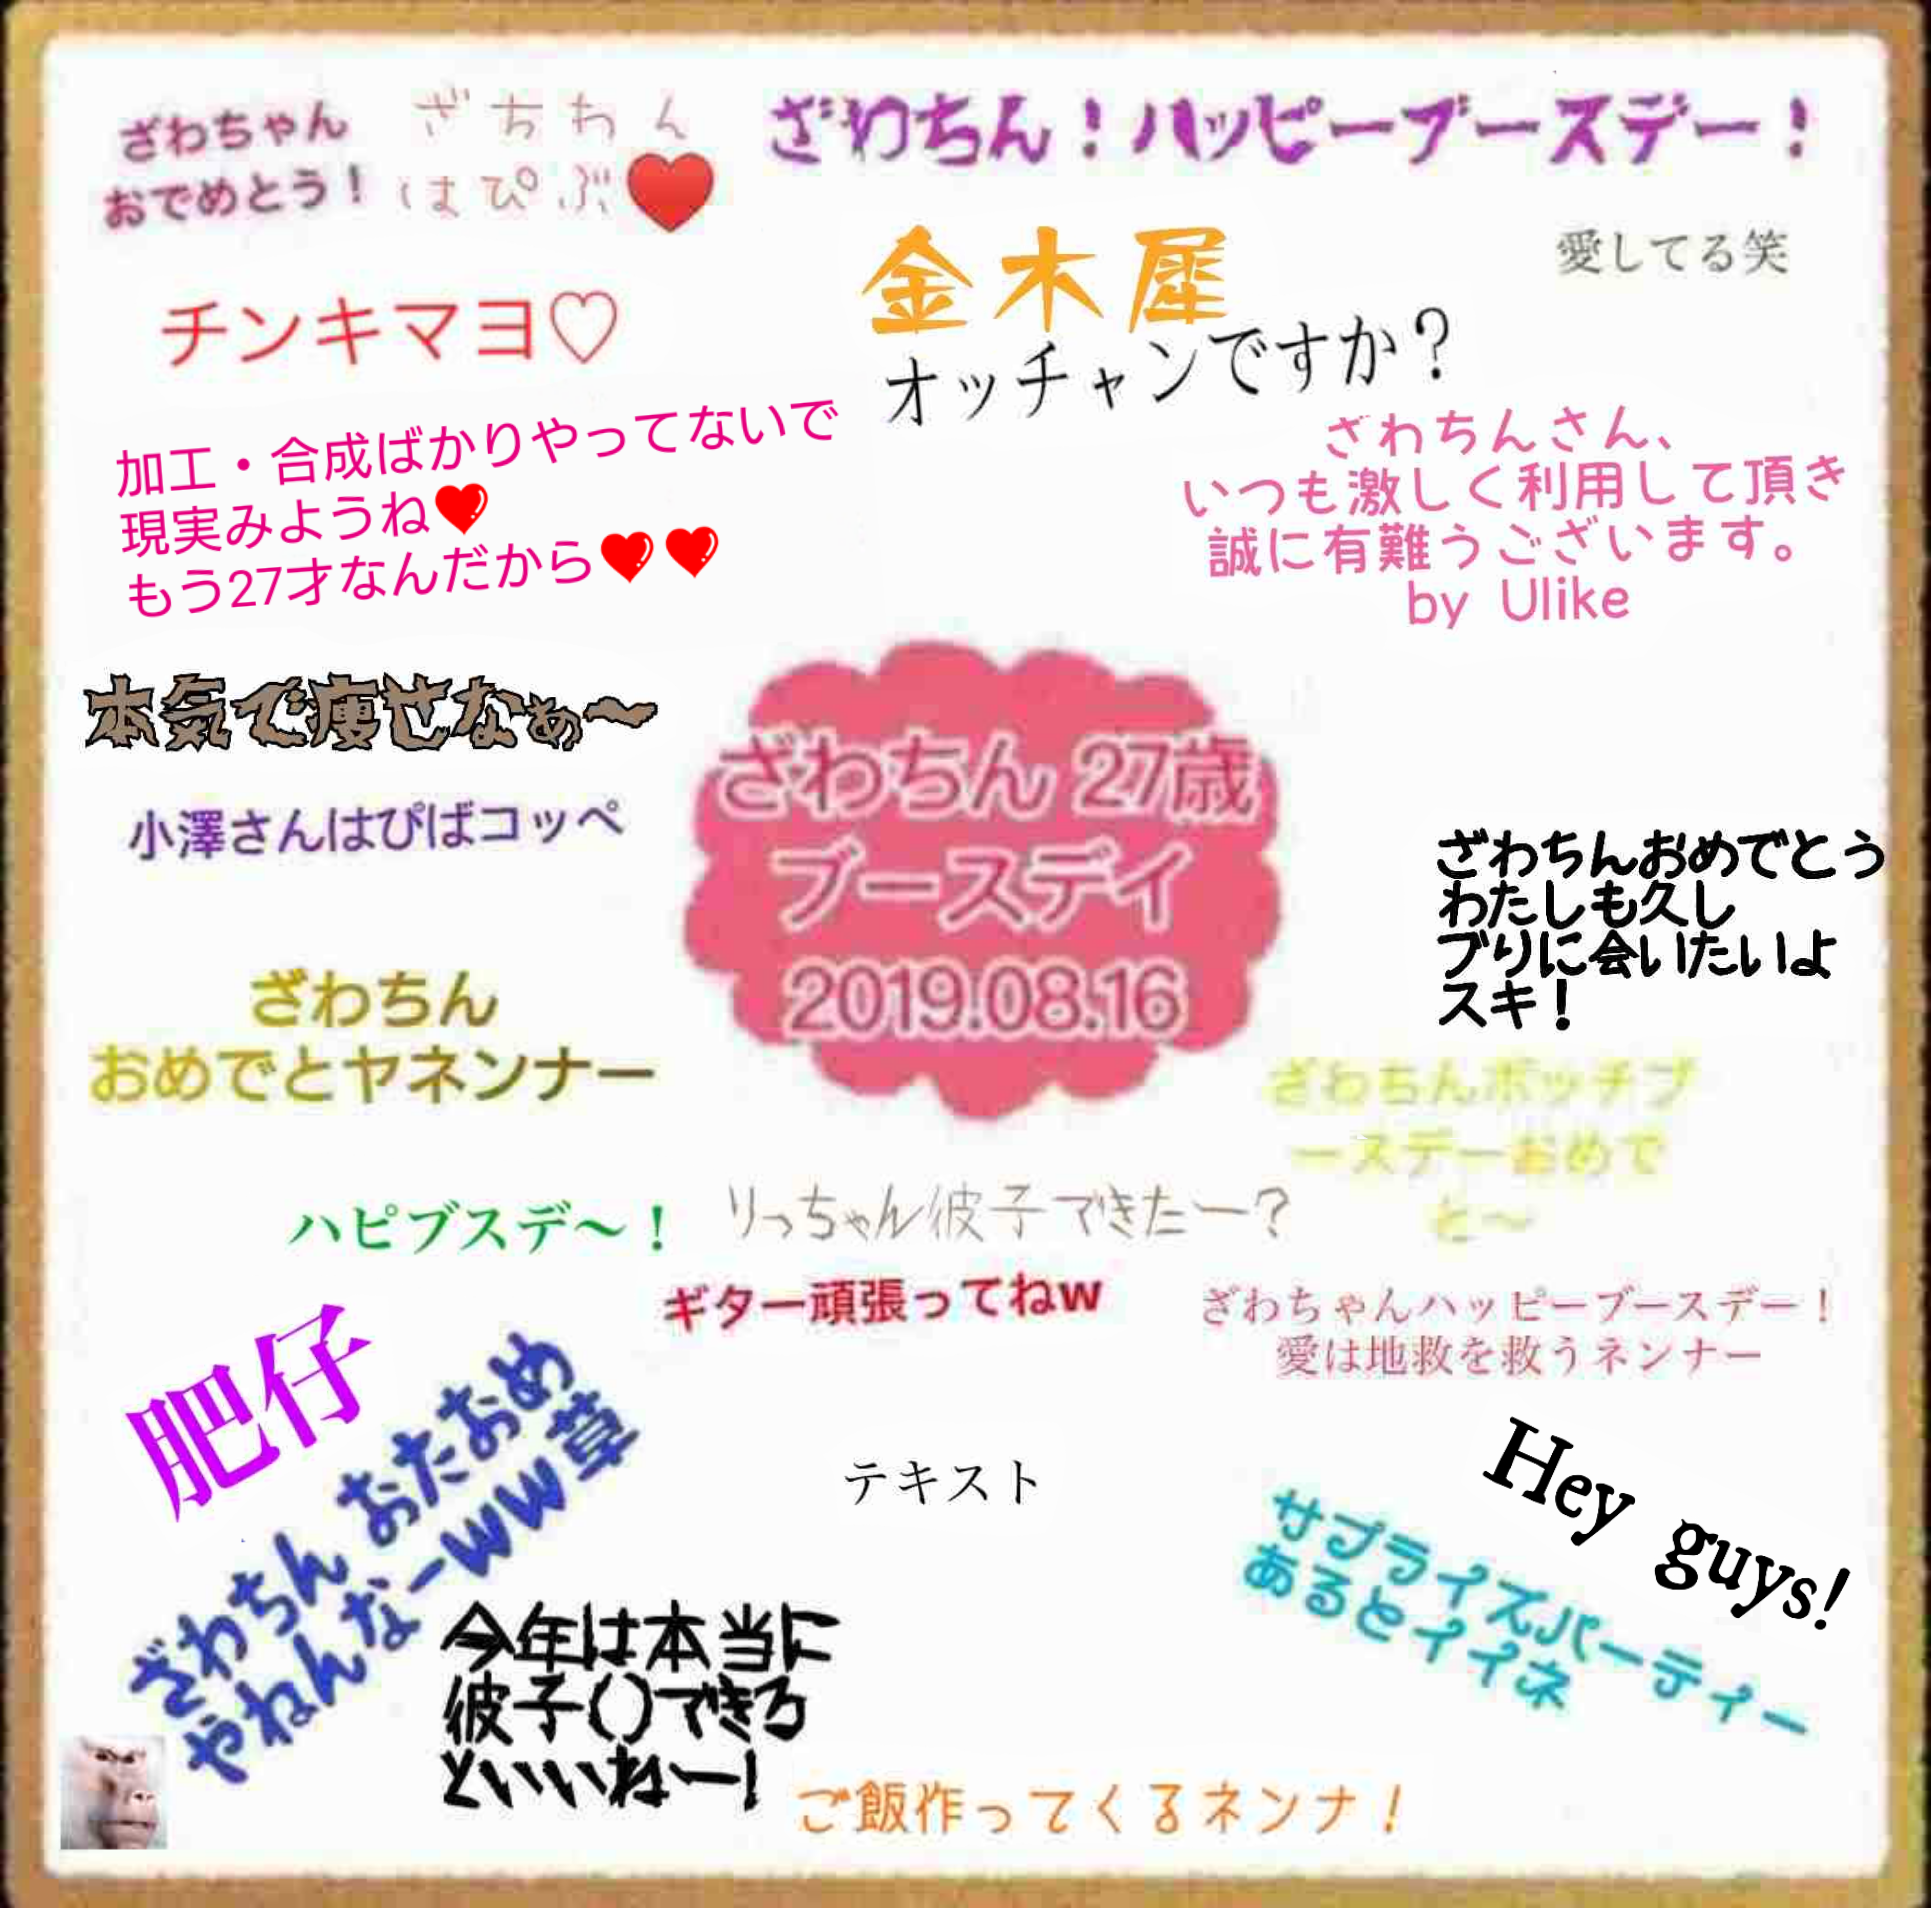 ざわちゃん
おでめとう！
ざちわん
はぴぶ♥
ざわちん！ハッピーブースデー！
愛してる笑
金木犀
オッチャンですか？
チンキマヨ♡
加工・合成ばかりやってないで
現実みようね❤
もう27才なんだから❤❤
ざわちんさん、
いつも激しく利用して頂き
誠に有難うございます。
by Ulike
本気で痩せなぁ〜
小澤さんはぴばコッペ
ざわちん 27歳
ブースデイ
2019.08.16
ざわちんおめでとう
わたしも久し
ブりに会いたいよ
スキ！
ざわちん
おめでとヤネンナー
ざわちんボッチブ
ースデーおめで
と〜
ハピブスデ〜！
りっちゃん彼子できたー？
ギター頑張ってねw
ざわちゃんハッピーブースデー！
愛は地救を救うネンナー
肥仔
ざわちん おたおめ
やねんなーww草
テキスト
Hey guys!
サプライズパーティー
あるとイイネ
今年は本当に
彼子()できろ
といいねー！
ご飯作ってくるネンナ！